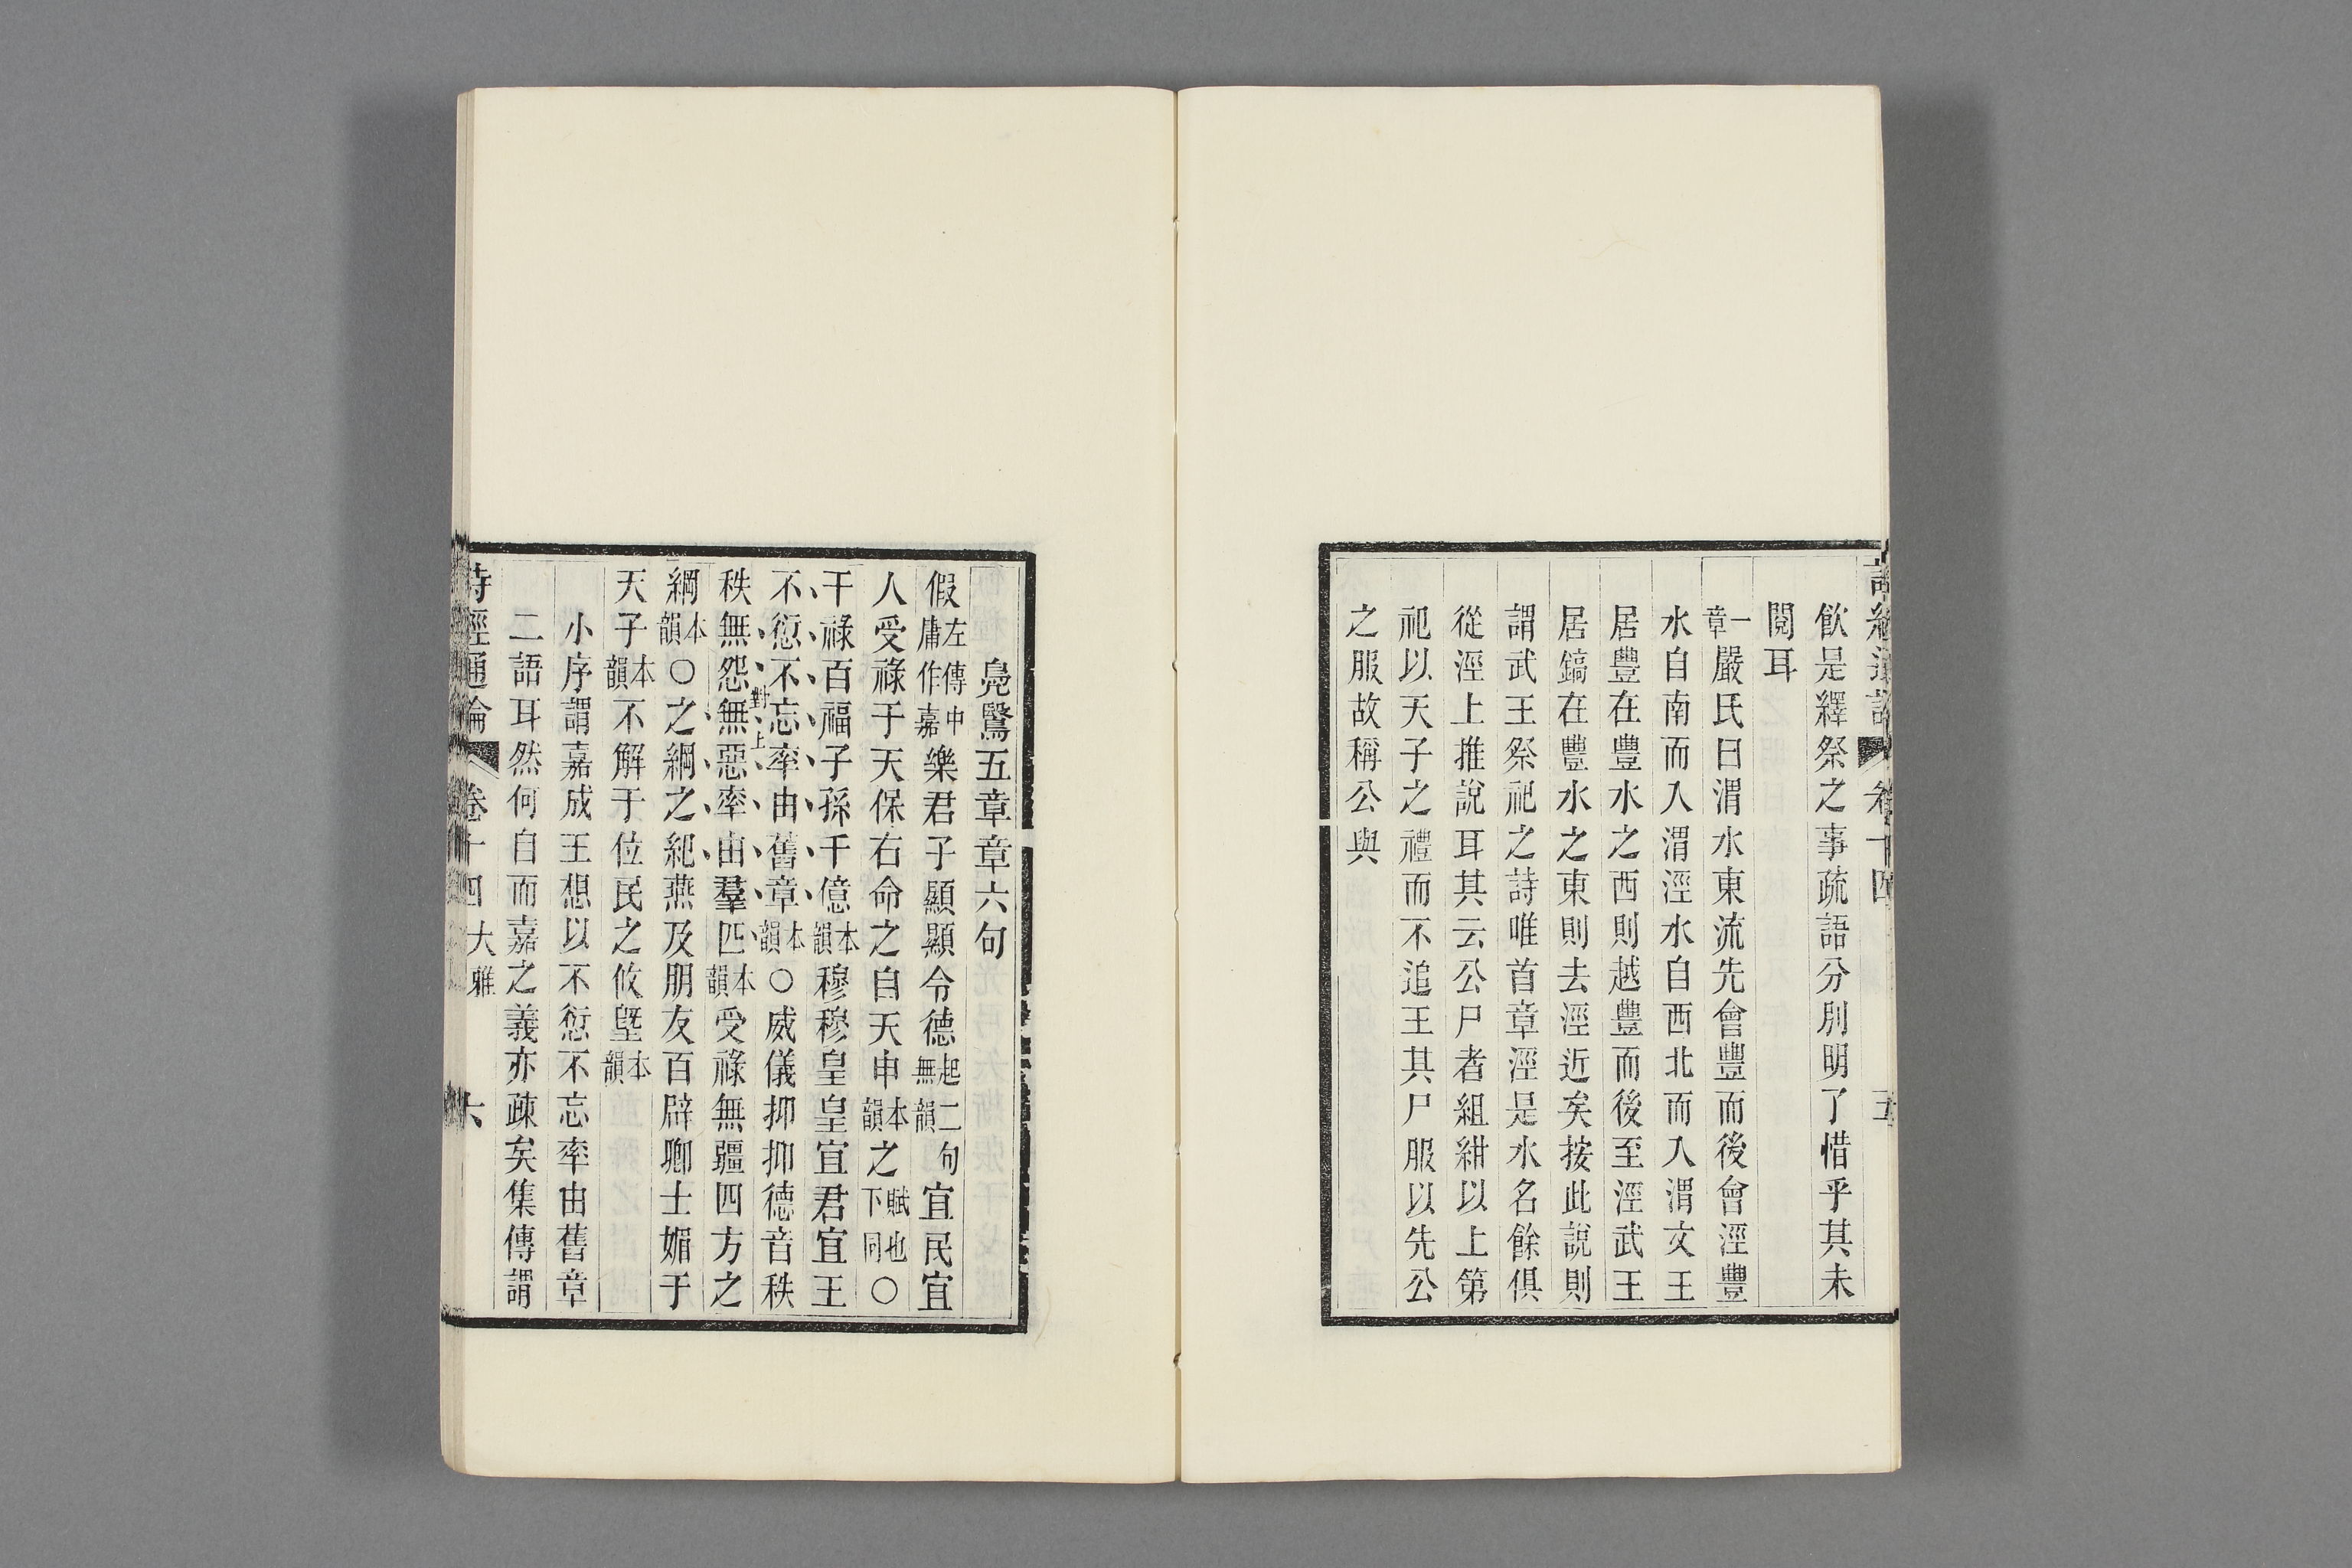 飲是繹祭之事疏語分別明了惜乎其未
閱耳
一章嚴氏曰渭水東流先會豐而後會涇豐
水自南而入渭涇水自西北而入渭文王
居豐在豐水之西則越豐而後至涇武王
居鎬在豐水之東則去涇近矣按此說則
謂武王祭祀之詩唯首章涇是水名餘俱
從涇上推說耳其云公尸者組紺以上第
祀以天子之禮而不追王其尸服以先公
之服故稱公與
鳧鷖五章章六句
假左傳中庸作嘉樂君子顯顯令德起二句無韻宜民宜
人受祿于天保右命之自天申本韻之賦也下同○
干祿百福子孫千億本韻穆穆皇皇宜君宜王
不愆不忘率由舊章本韻○威儀抑抑德音秩
對上
秩無怨無惡率由羣匹本韻受祿無疆四方之
綱本韻○之綱之紀燕及朋友百辟卿士媚于
天子本韻不解于位民之攸塈本韻
小序謂嘉成王想以不愆不忘率由舊章
二語耳然何自而嘉之義亦疎矣集傳謂
詩經通論 卷十四 大雅 六